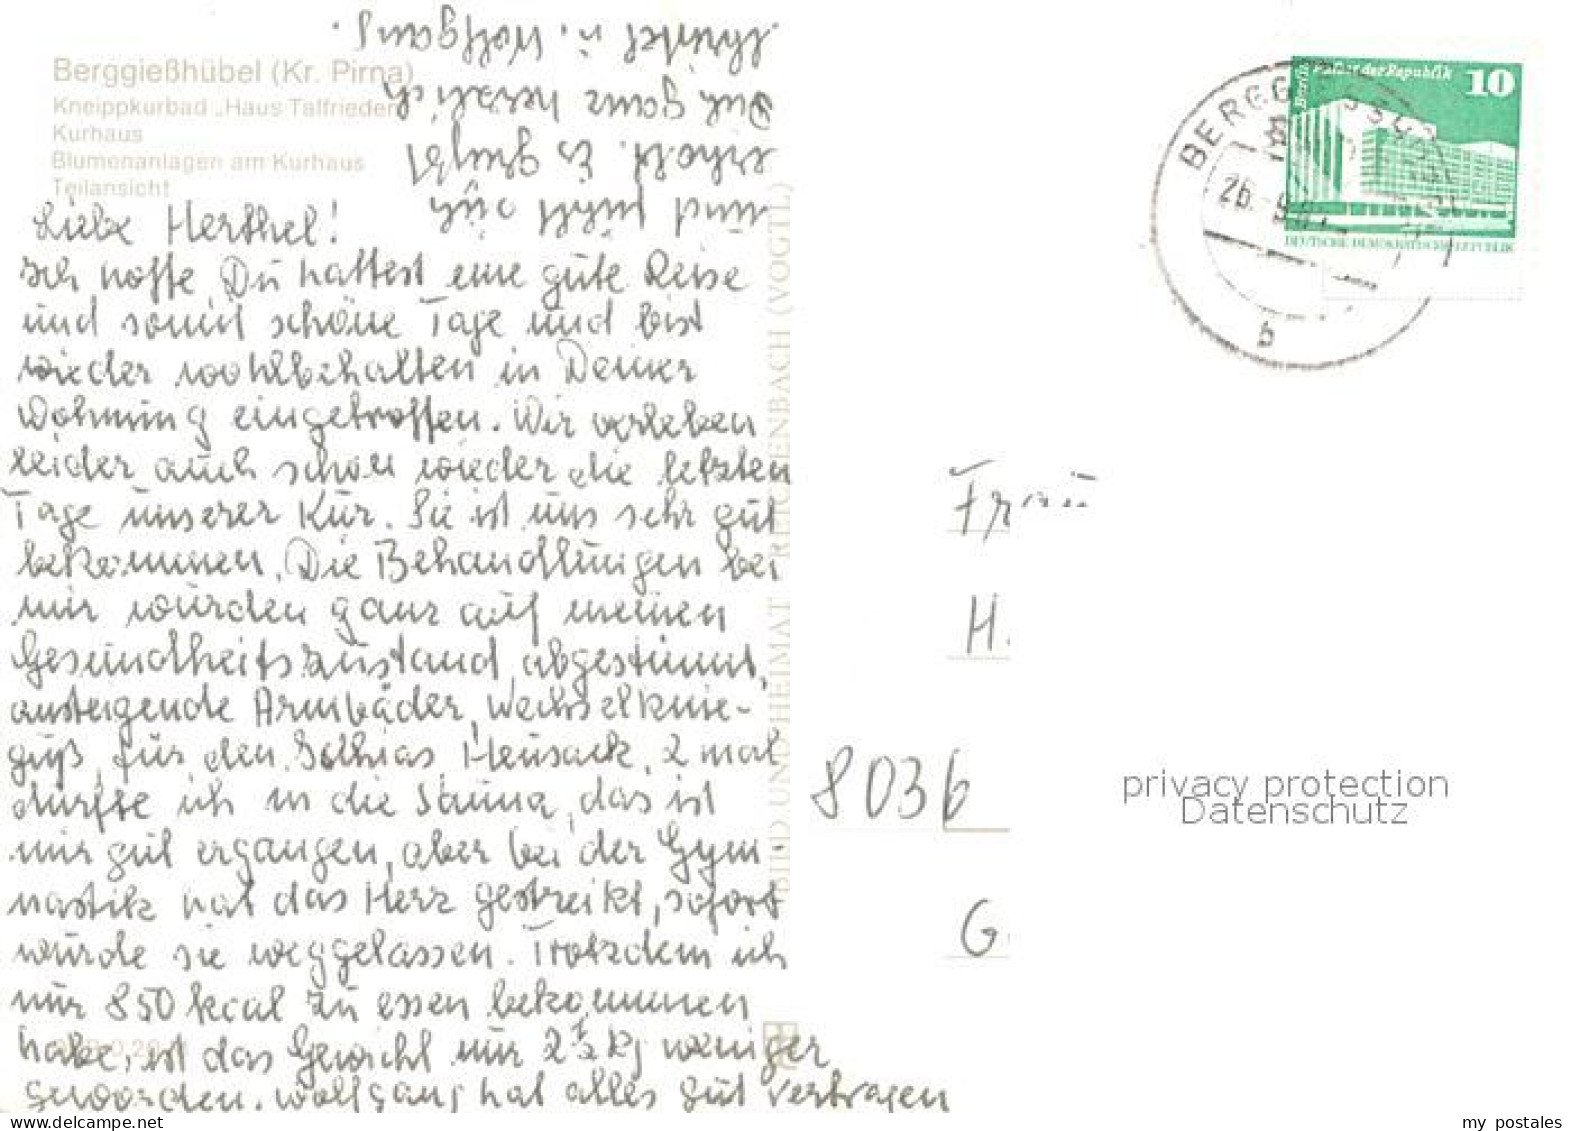 Berggießhübel (Kr. Pirna)
Kneippkurbad „Haus Talfrieden"
Kurhaus
Blumenanlagen am Kurhaus
Teilansicht
Liebe Herthel!
Ich hoffe, Du hattest eine gute Reise
und somit schöne Tage und bist
wieder wohlbehalten in Deiner
Wohnung eingetroffen. Wir verleben
leider auch schon wieder die letzten
Tage unserer Kur. Sie ist uns sehr gut
bekommen. Die Behandlungen bei
mir wurden ganz auf meinen
Gesundheitszustand abgestimmt,
ansteigende Armbäder, Wechselknie-
guß, für den Heusack, 2 mal
durfte ich in die Sauna, das ist
mir gut ergangen, aber bei der Gym-
nastik hat das Herz gestreikt, sofort
wurde sie weggelassen. Trotzdem ich
nur 850 kcal zu essen bekommen
habe, ist das Gewicht nur 2½ kg weniger
geworden. Wolfgang hat alles gut vertragen
und fühlt sich
erholt. Es grüßt
Dich ganz herzlich
u. Wolfgang.
BILD UND HEIMAT REICHENBACH (VOGTL)
Berlin Palast der Republik
10
DEUTSCHE DEMOKRATISCHE REPUBLIK
26.
b
Frau
H.
8036
G
privacy protection
Datenschutz
my postales